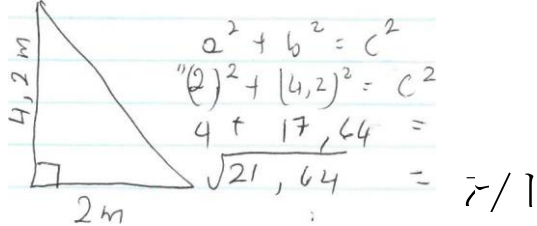 4,2 m
a² + b² = c²
"(2)² + (4,2)² = c²
4 + 17,64 =
√21,64 =
2m